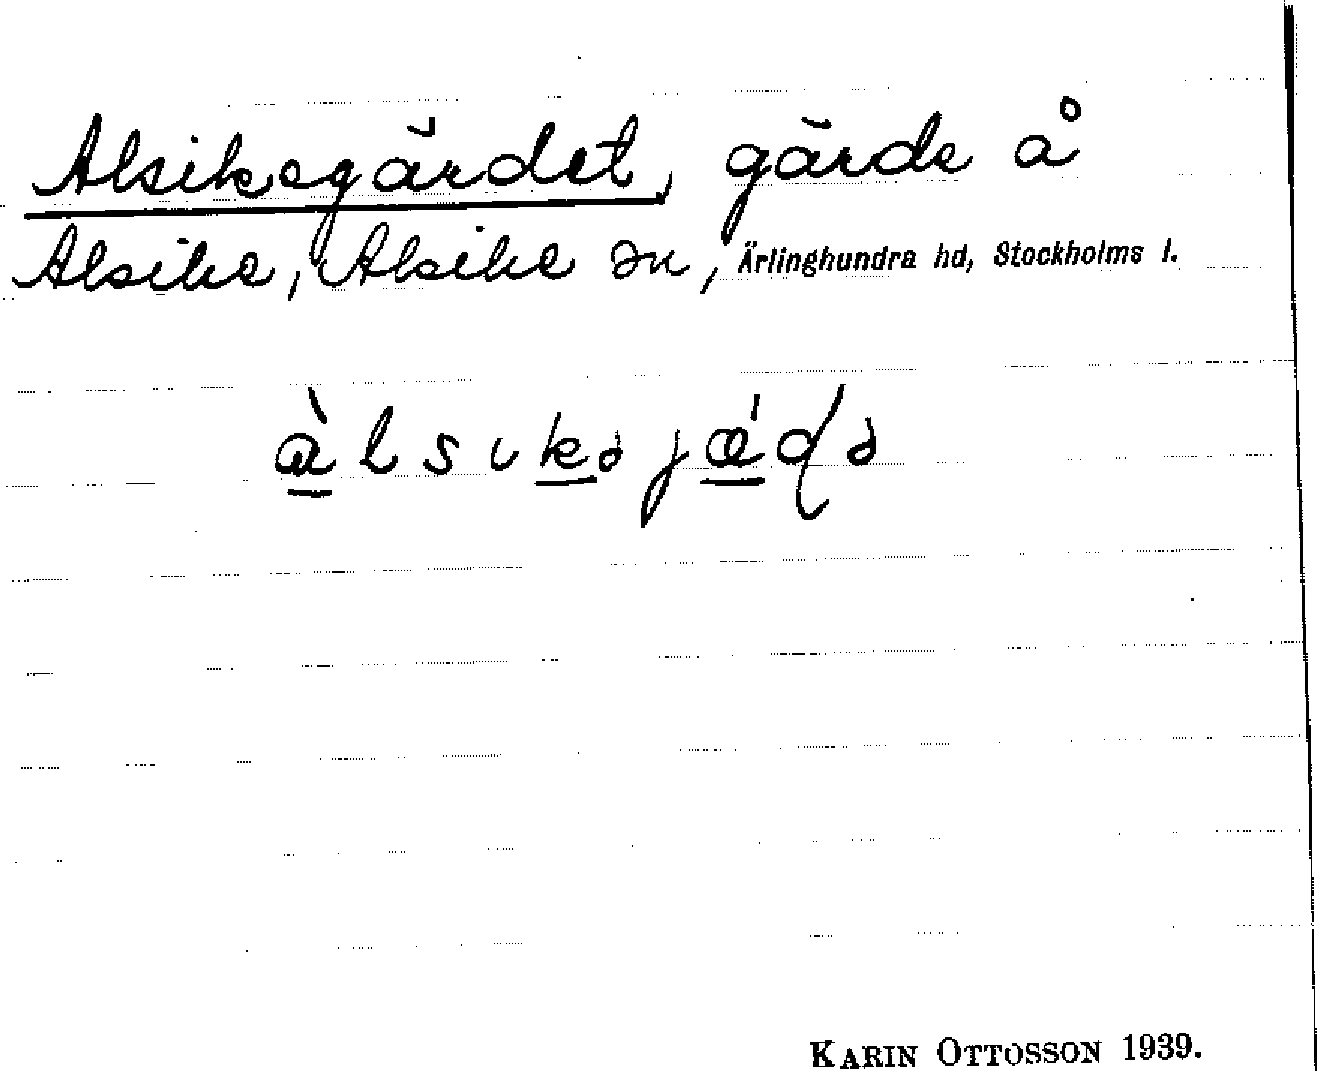 Alsikegärdet, gärde å
Alsike, Alsike sn, Ärlinghundra hd, Stockholms l.
KARIN OTTOSSON 1939.